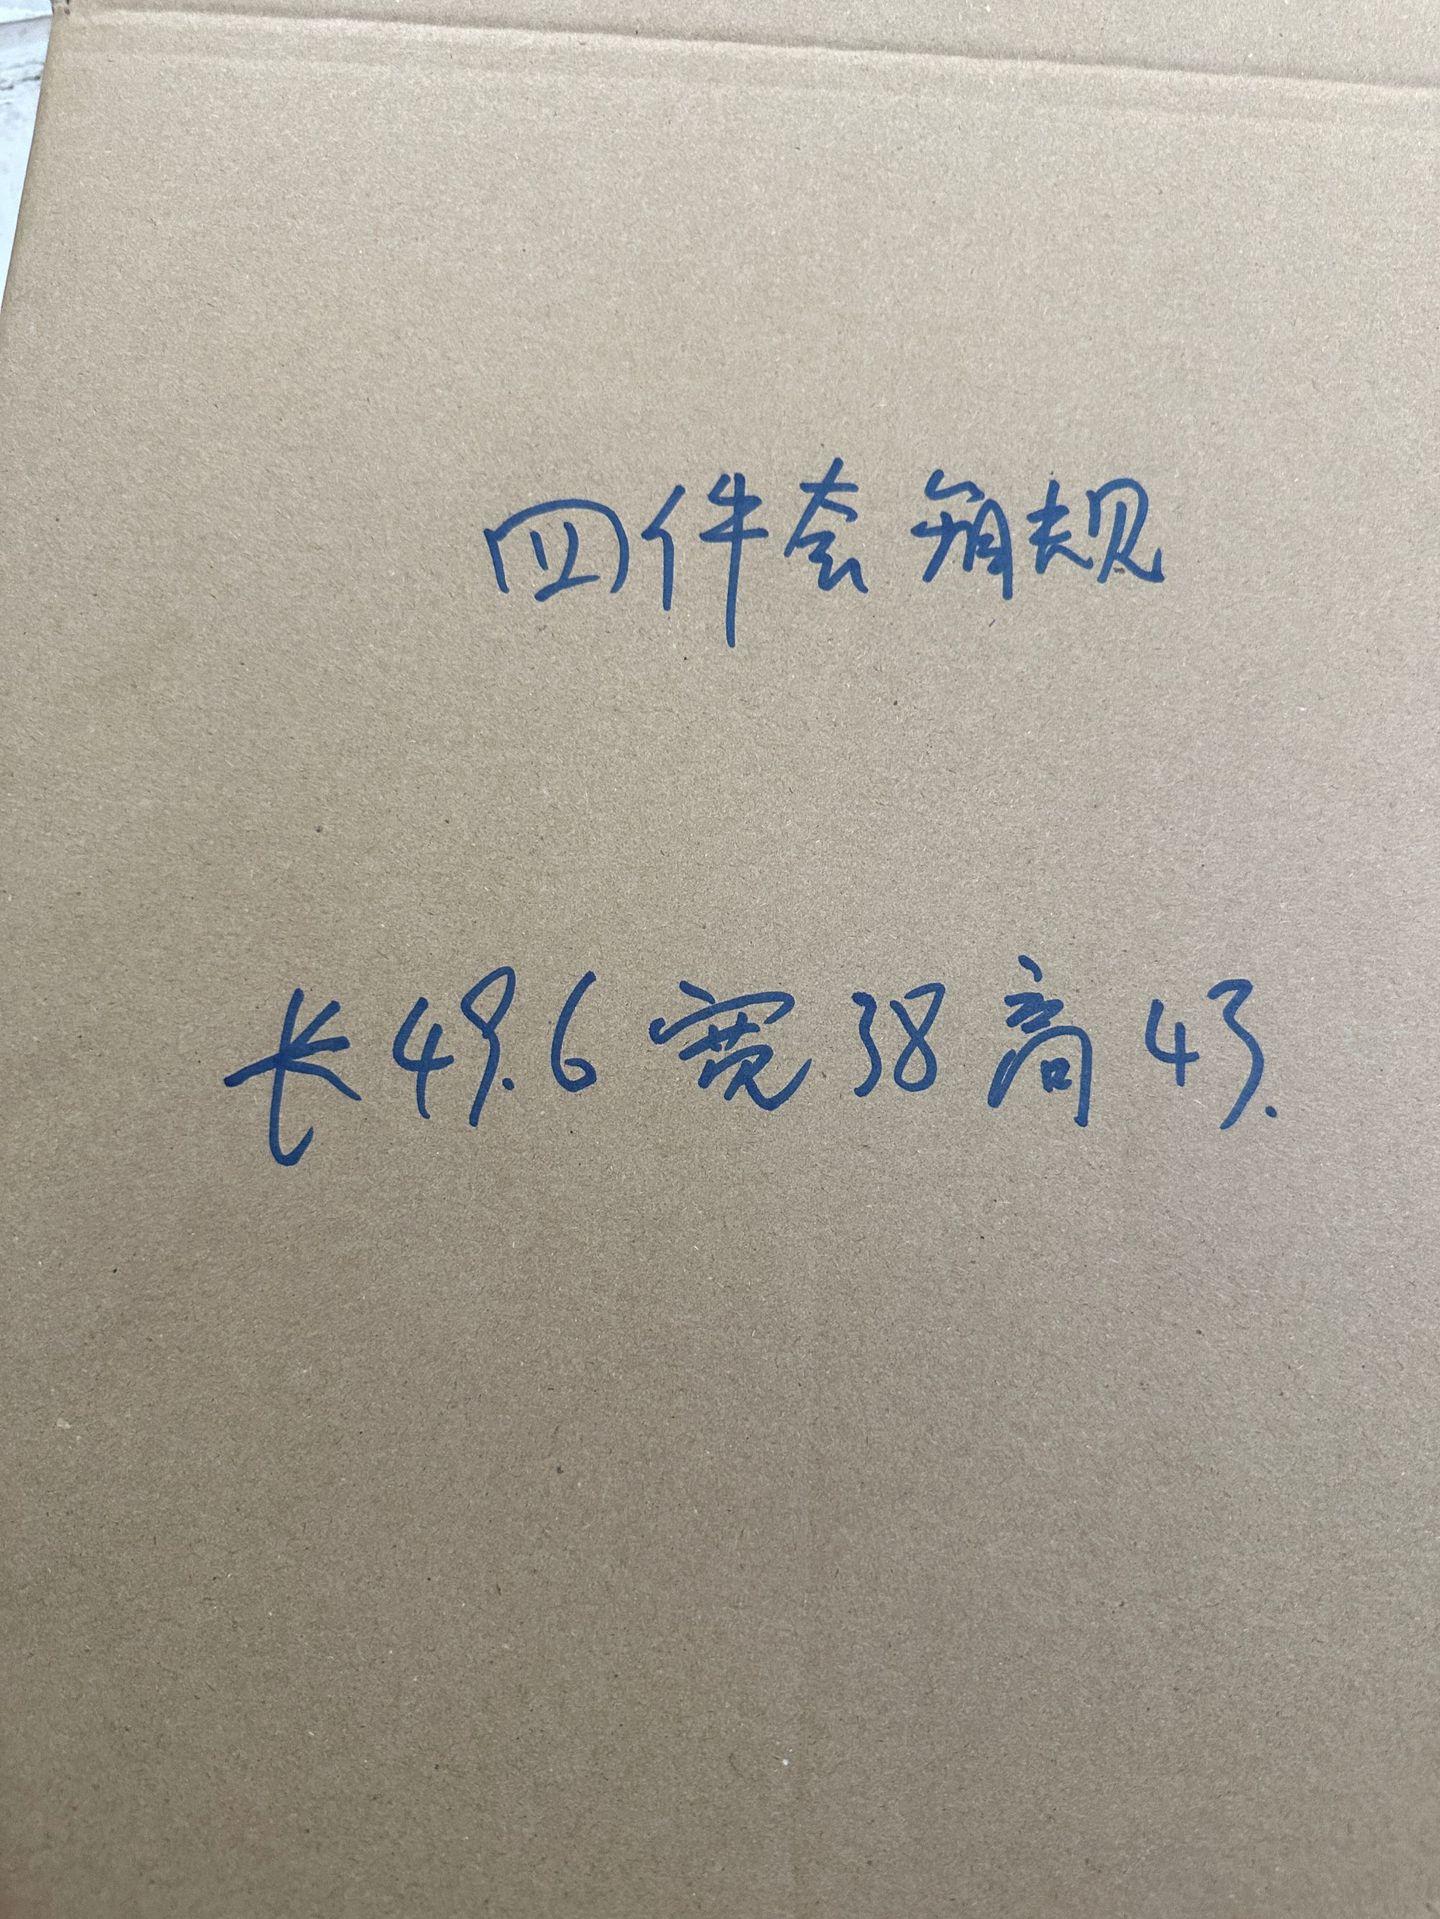 四件套箱规
长49.6宽38高43.